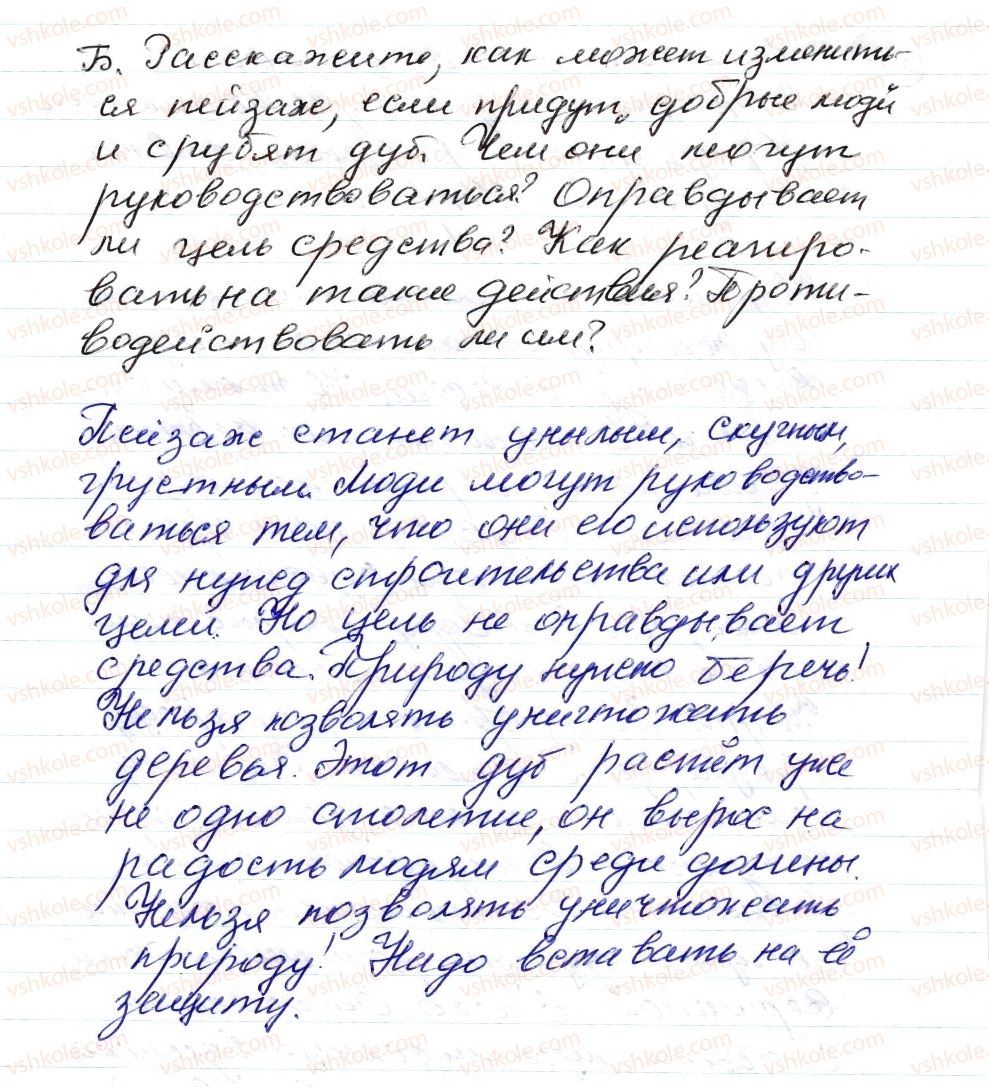 Б. Расскажите, как может изменить-
ся пейзаж, если придут „добрые“ люди
и срубят дуб. Чем они могут
руководствоваться? Оправдывает
ли цель средства? Как реагиро-
вать на такие действия? Проти-
водействовать ли им?
Пейзаж станет унылым, скучным,
грустным. Люди могут руководство-
ваться тем, что они его используют
для нужд строительства или других
целей. Но цель не оправдывает
средства. Природу нужно беречь!
Нельзя позволять уничтожать
деревья. Этот дуб растёт уже
не одно столетие, он вырос на
радость людям среди долины.
Нельзя позволять уничтожать
природу! Надо вставать на её
защиту.